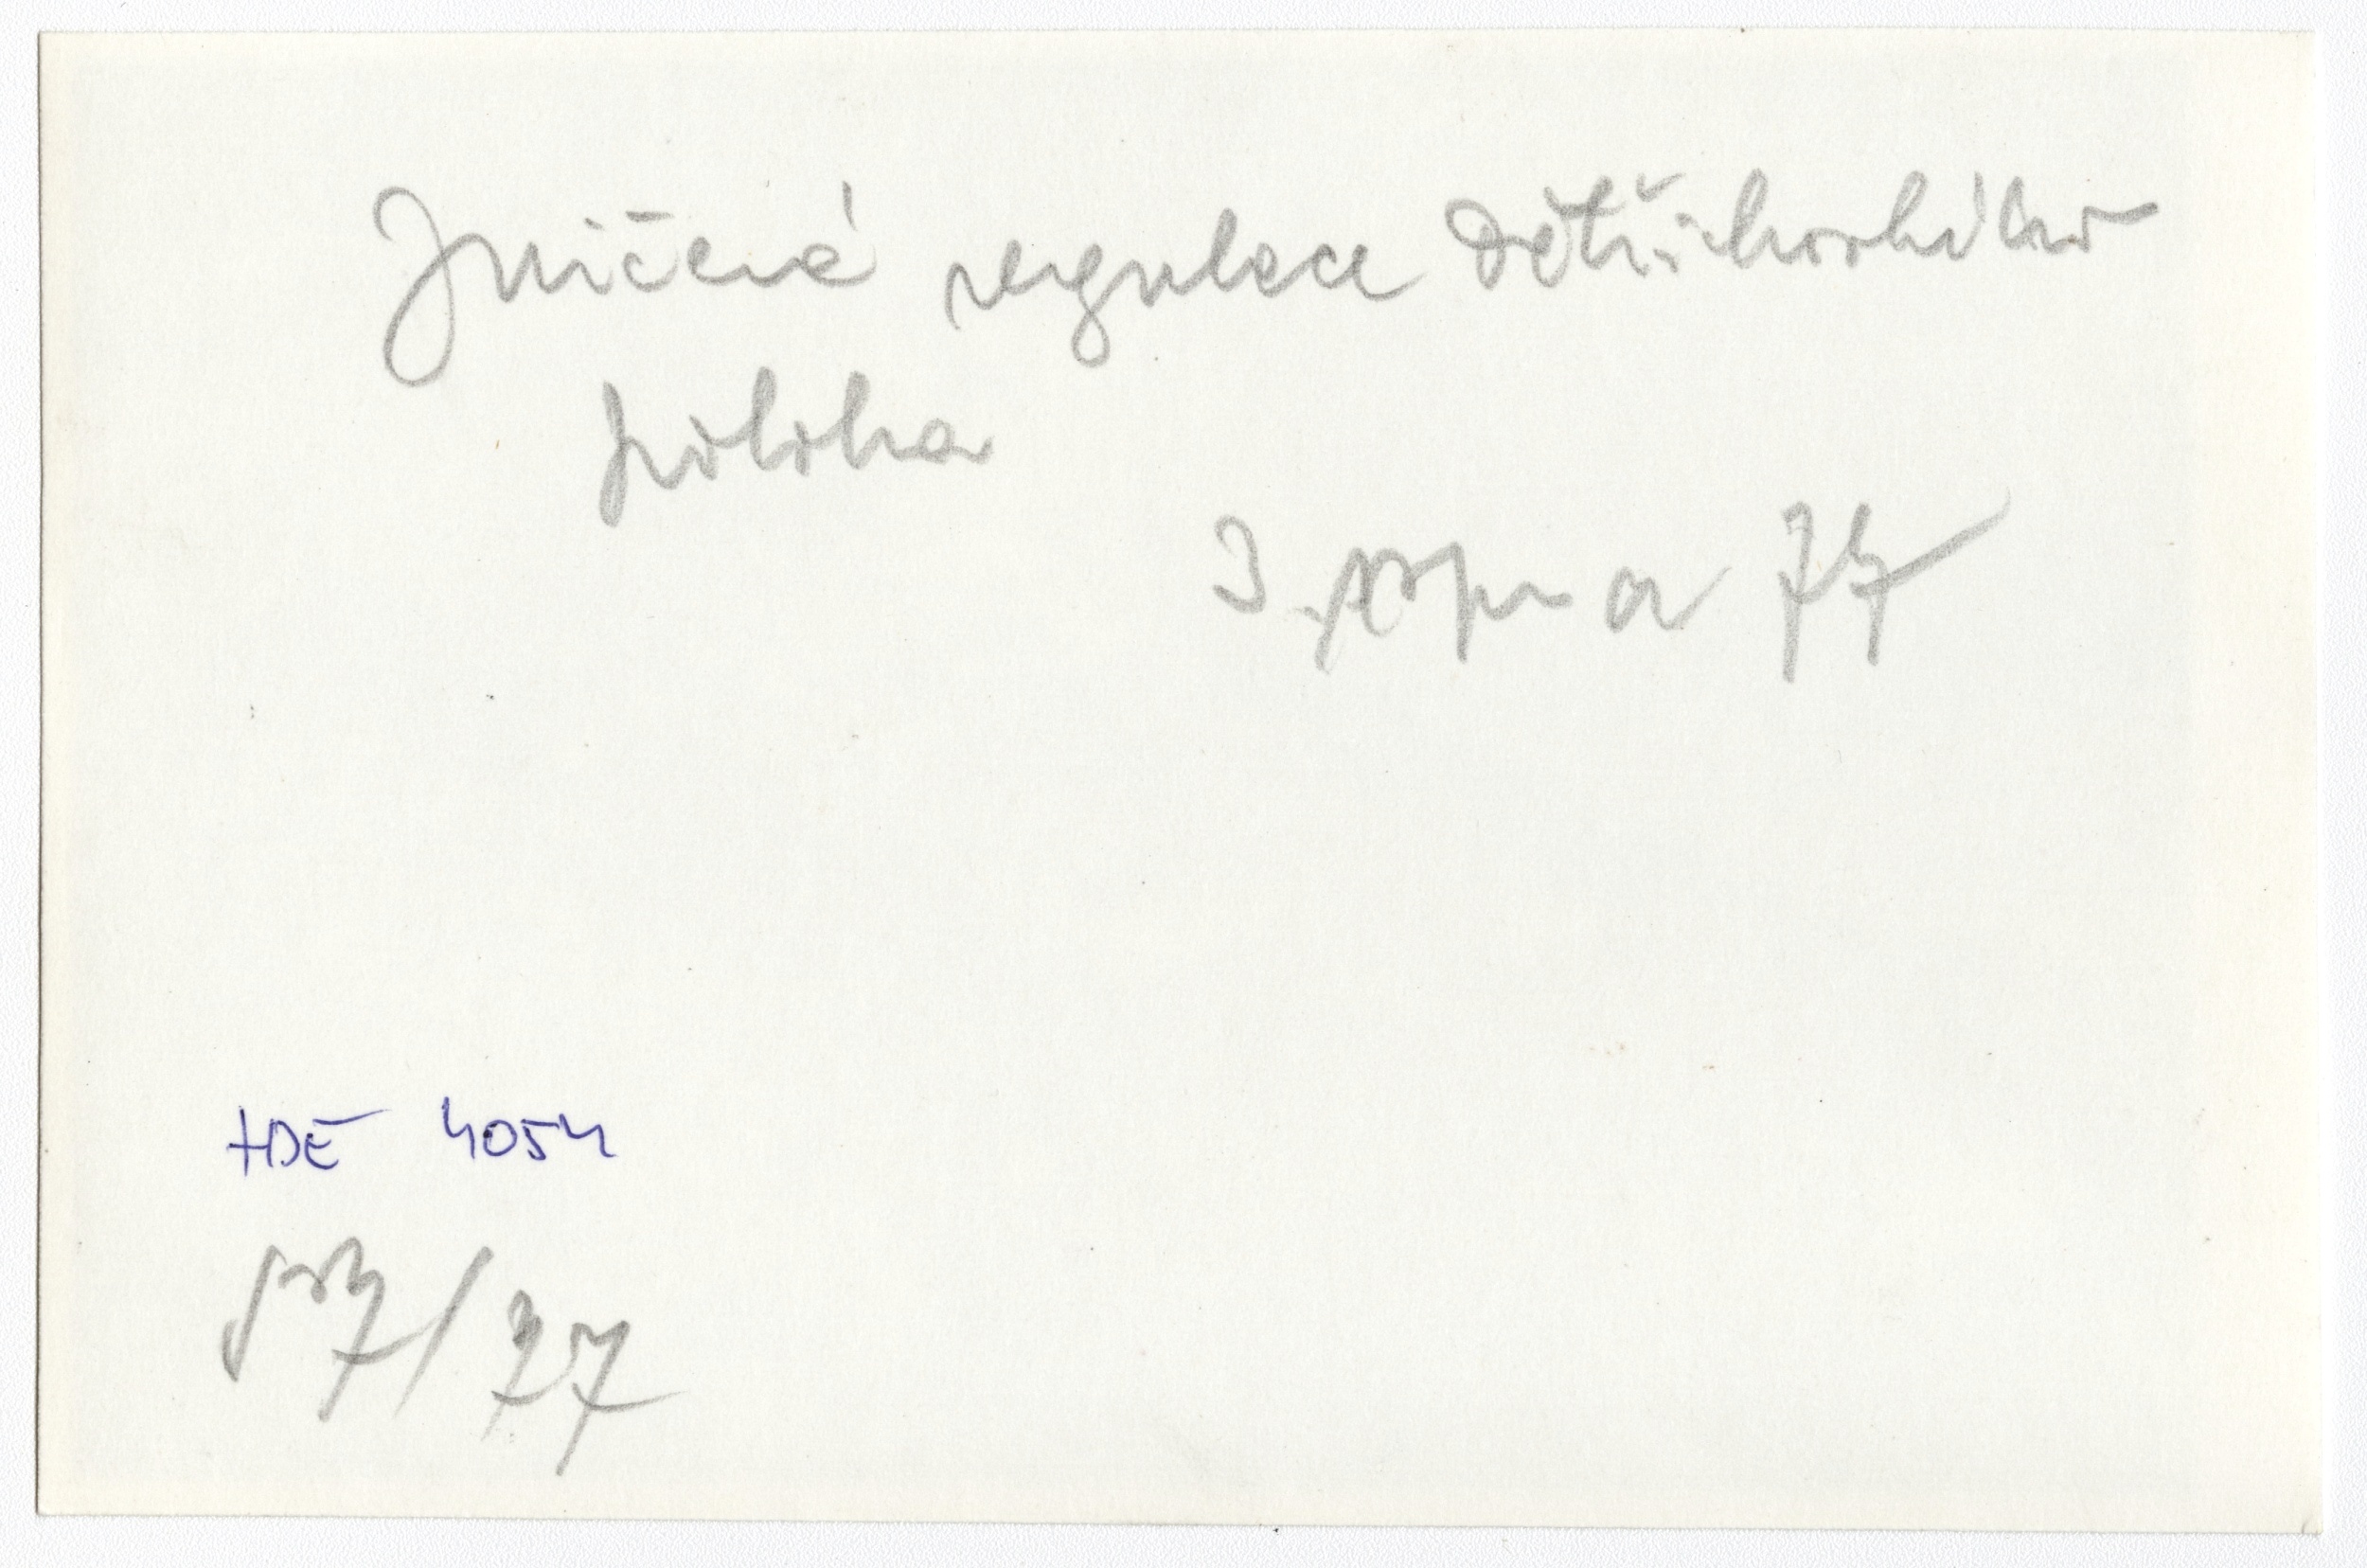 Zničená regulace Dětřichovského
potoka
3. srpna 77
HDE 4054
57/77